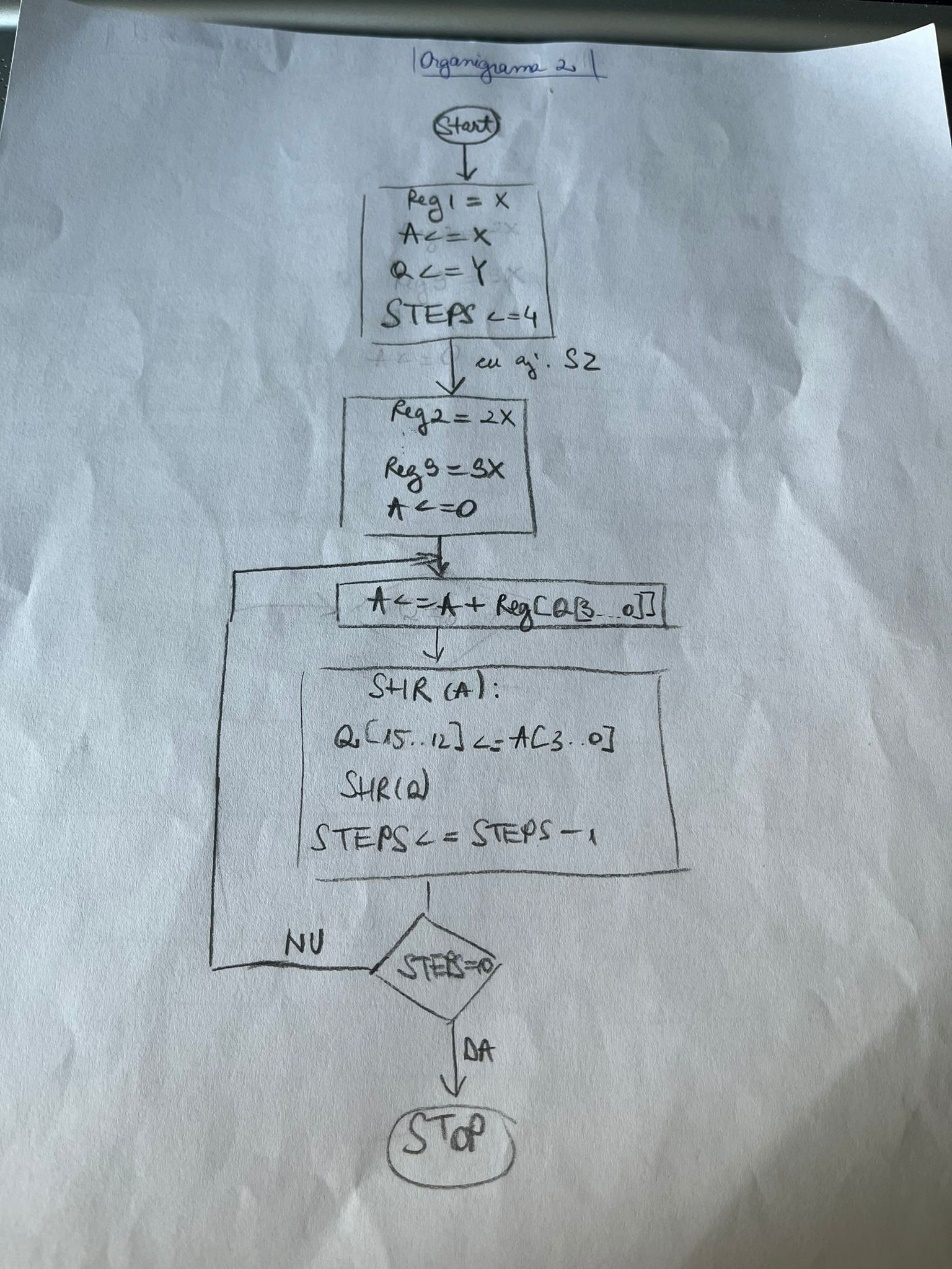 Organigrama 2
Start
Reg1 = X
A <= X
Q <= Y
STEPS <= 4
cu aj. SZ
Reg2 = 2X
Reg3 = 3X
A <= 0
A <= A + Reg[Q[3...0]]
SHR (A):
Q[15..12] <= A[3..0]
SHR(Q)
STEPS <= STEPS - 1
NU
STEPS=0
DA
STOP